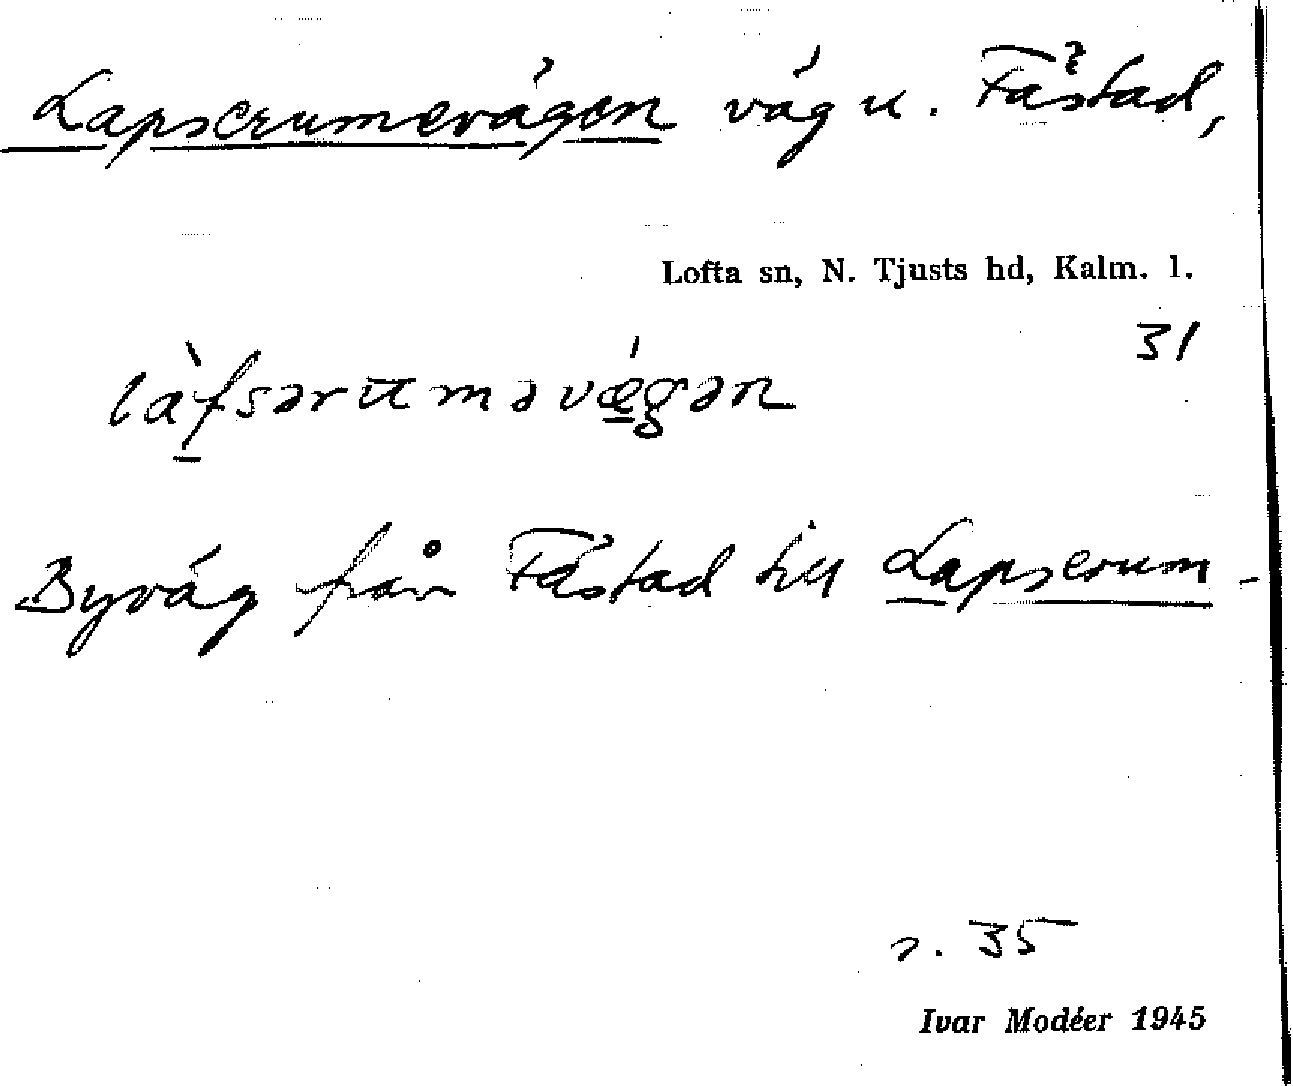 Lapserumevägen väg u. Fåstad,
Lofta sn, N. Tjusts hd, Kalm. l.
31
làfsərumavǽgən
Byväg från Fåstad till Lapserum-
s. 35
Ivar Modéer 1945